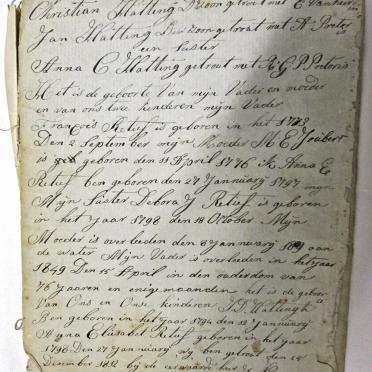 Christian Hatting De Zoon getrout met E
Jan Hatting Die Zoon getrout met A Preter
een Suster
Anna C Hatting getrout met A. G P Pretoris
Het is de geboorte Van mijn Vader en moeder
en van ons twe kinderen mijn Vader
Francois Retief is geboren in het 1773
Den 2 September mijn Moeder M E Joubert
is geboren den 11 April 1776 Ik Anna E
Retief ben geboren den 27 Jannuwary 1797 mijn
Mijn Suster Debora J Retief is geboren
in het Jaar 1798 den 18 October Mijn
Moeder is overleeden den 8 Jannuwary aan
de water Mijn Vader is overleeden in het jaar
1849 Den 15 April in den ouderdom van
75 Jaaren en enige maanden het is de geboor
Van Ons en Onse kinderen J.D. Hattingh
Ben geboren in het jaar 1794 den 12 Januwary
Elisabet Retief geboren in het jaar
1798 Den 27 Jannuwary wy ben getrout den
December 1812 by de